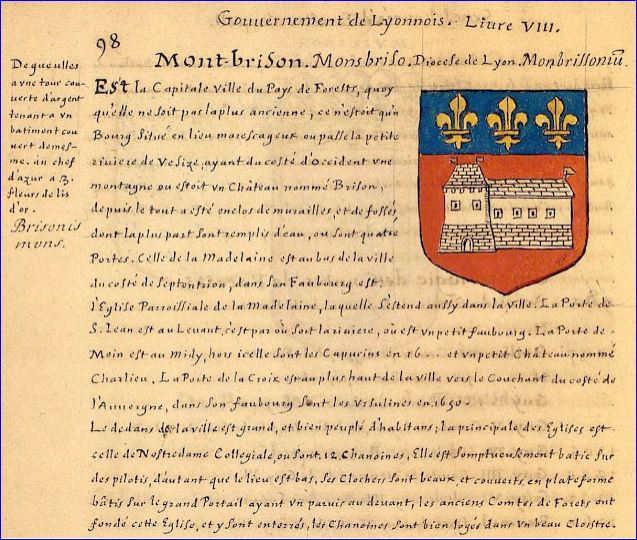 Gouuernement de Lyonnois. Liure VIII.
98
Montbrison. Monsbriso. Diocese de Lyon. Monbrissoniũ.
De gueulles
a vne tour cou-
uerte d'argent
tenant a vn
batiment cou
uert de mes-
me. au chef
d'azur a 3.
fleurs de lis
d'or.
Brisonis
mons.
Est la Capitale Ville du Pays de Forests, quoy
qu'elle ne soit pas la plus ancienne, ce n'estoit qu'n
Bourg Situé en lieu marescageux ou passe la petite
riuiere de Vesize, ayant du costé d'Occident vne
montagne ou estoit vn Château nommé Brison,
depuis le tout a esté enclos de murailles, et de fossés,
dont la plus part sont remplis d'eau, ou sont quatre
Portes. Celle de la Madelaine est au bus de la ville
du costé de Septentrion, dans son Faubourg est
l'Eglise Parroissiale de la Madelaine, laquelle s'estend aussy dans la ville. La Porte de
S. Iean est au Leuant, c'est par où sort la riuiere, où est vn petit faubourg. La Porte de
Moin est au midy, hors icelle sont les Capucins en 16 . . et vn petit Château nommé
Charlieu. La Porte de la Croix est au plus haut de la ville vers le Couchant du costé de
l'Auuergne, dans son faubourg sont les Vrsulines en 1650.
Le dedans de la ville est grand, et bien peuplé d'habitans; la principale des Eglises est
celle de Nostredame Collegiale, ou sont 12. Chanoines, Elle est somptueusement batie sur
des pilotis, d'autant que le lieu est bas, Ses Clochers sont beaux et couuerts en plateforme
bâtis sur le grand Portail ayant vn paruis au deuant, les anciens Comtes de Forets ont
fondé cette Eglise, et y sont enterrés, les Chanoines sont bien logés dans vn beau Cloistre.